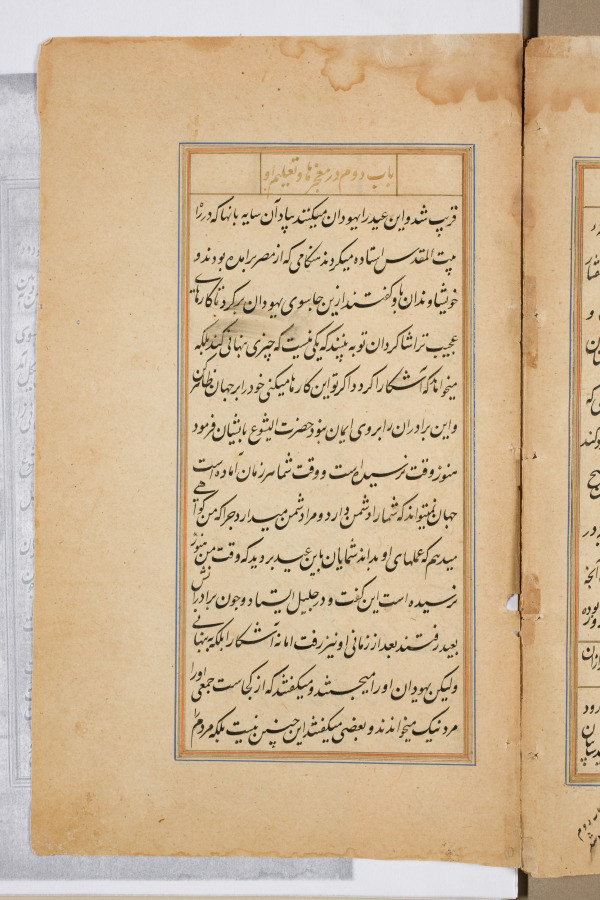 باب دوم در معجزها و تعلیم او
قریب شد و این عید را یهودان میکنند بیاد آن سایه بانها که در راه
بیت المقدس استاده میکردند هنگامی که از مصر برامده بودند و
خویشاوندان باو گفتند ازین جا سوی یهودان برگرد تا کارهای
عجیب ترا شاکردان تو به بینند که یکی نیست که چیزی بنهانی کند بلکه
میخواهد که آشکارا کردد اکر تو این کارها میکنی خود را بر جهان ظاهر کن
و این برادران را بروی ایمان نبود حضرت ایشوع بایشان فرمود
هنوز وقت نرسیده است و وقت شما هر زمان آماده است
جهان نمیتواند که شما را دشمن دارد و مرا دشمن میدارد چرا که من گواهی
میدهم که عملهای او بد اند شمایان باین عید بروید که وقت من هنوز
نرسیده است این گفت و در جلیل ایستاد و چون برادرانش
بعید رفتند بعد از زمانی او نیز رفت اما نه آشکارا بلکه بنهانی
ولیکن یهودان او را میجستند و میکفتند که از کجاست جمعی او را
مرد نیک میخواندند و بعضی میکفتند این چنین نیست بلکه مردم را